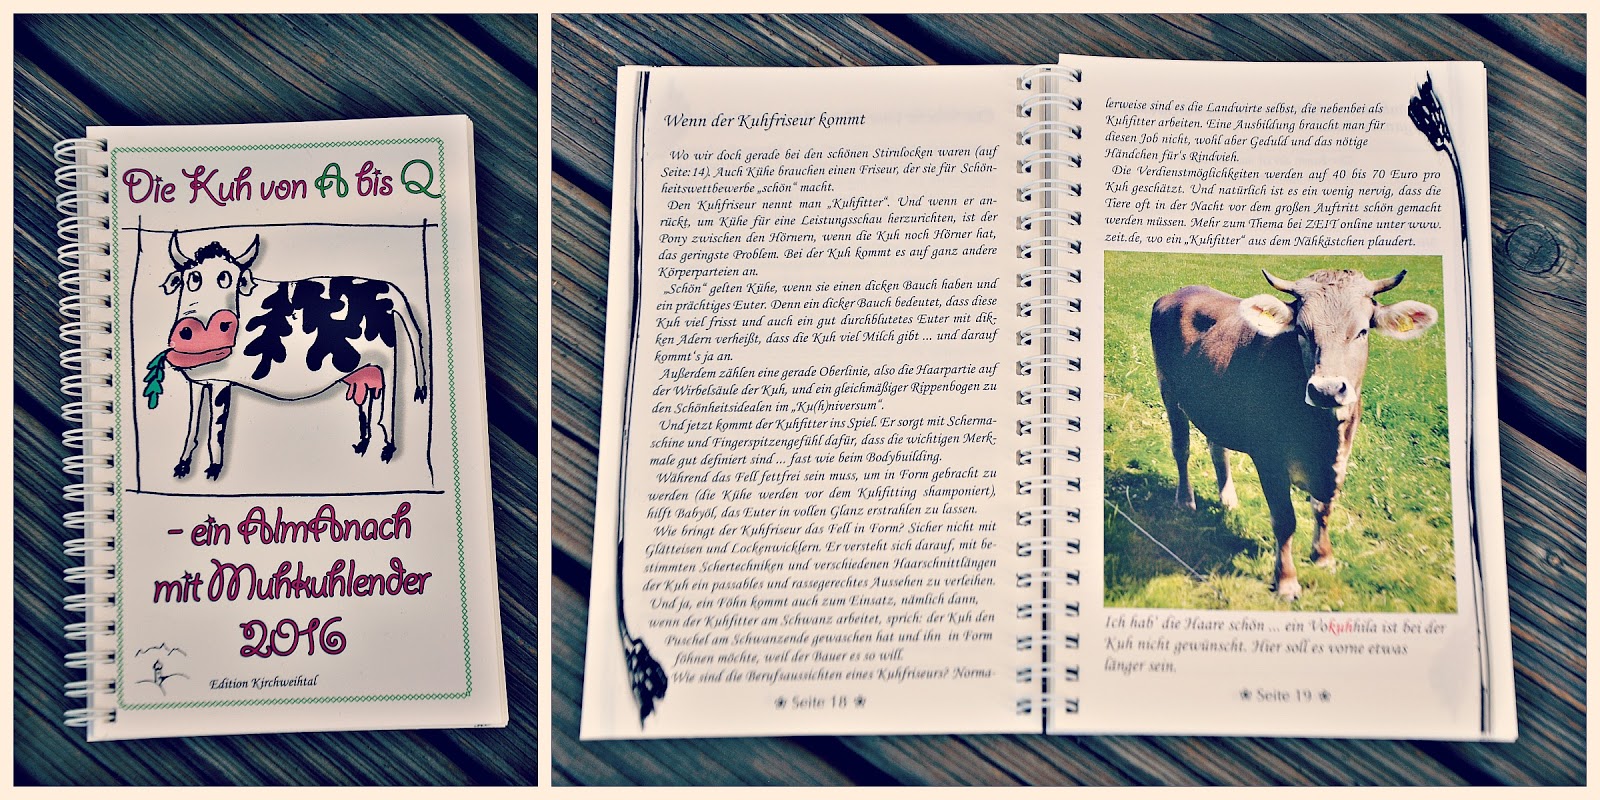 Die Kuh von A bis Q
- ein AlmAnach
mit Muhkuhlender
2016
Edition Kirchweihtal
Wenn der Kuhfriseur kommt
Wo wir doch gerade bei den schönen Stirnlocken waren (auf
Seite:14). Auch Kühe brauchen einen Friseur, der sie für Schön-
heitswettbewerbe „schön“ macht.
Den Kuhfriseur nennt man „Kuhfitter“. Und wenn er an-
rückt, um Kühe für eine Leistungsschau herzurichten, ist der
Pony zwischen den Hörnern, wenn die Kuh noch Hörner hat,
das geringste Problem. Bei der Kuh kommt es auf ganz andere
Körperparteien an.
„Schön“ gelten Kühe, wenn sie einen dicken Bauch haben und
ein prächtiges Euter. Denn ein dicker Bauch bedeutet, dass diese
Kuh viel frisst und auch ein gut durchblutetes Euter mit dik-
ken Adern verheißt, dass die Kuh viel Milch gibt ... und darauf
kommt's ja an.
Außerdem zählen eine gerade Oberlinie, also die Haarpartie auf
der Wirbelsäule der Kuh, und ein gleichmäßiger Rippenbogen zu
den Schönheitsidealen im „Ku(h)niversum“.
Und jetzt kommt der Kuhfitter ins Spiel. Er sorgt mit Scherma-
schine und Fingerspitzengefühl dafür, dass die wichtigen Merk-
male gut definiert sind ... fast wie beim Bodybuilding.
Während das Fell fettfrei sein muss, um in Form gebracht zu
werden (die Kühe werden vor dem Kuhfitting shamponiert),
hilft Babyöl, das Euter in vollen Glanz erstrahlen zu lassen.
Wie bringt der Kuhfriseur das Fell in Form? Sicher nicht mit
Glätteisen und Lockenwicklern. Er versteht sich darauf, mit be-
stimmten Schertechniken und verschiedenen Haarschnittlängen
der Kuh ein passables und rassegerechtes Aussehen zu verleihen.
Und ja, ein Föhn kommt auch zum Einsatz, nämlich dann,
wenn der Kuhfitter am Schwanz arbeitet, sprich: der Kuh den
Puschel am Schwanzende gewaschen hat und ihn in Form
föhnen möchte, weil der Bauer es so will.
Wie sind die Berufsaussichten eines Kuhfriseurs? Norma-
Seite 18
lerweise sind es die Landwirte selbst, die nebenbei als
Kuhfitter arbeiten. Eine Ausbildung braucht man für
diesen Job nicht, wohl aber Geduld und das nötige
Händchen für's Rindvieh.
Die Verdienstmöglichkeiten werden auf 40 bis 70 Euro pro
Kuh geschätzt. Und natürlich ist es ein wenig nervig, dass die
Tiere oft in der Nacht vor dem großen Auftritt schön gemacht
werden müssen. Mehr zum Thema bei ZEIT online unter www.
zeit.de, wo ein „Kuhfitter“ aus dem Nähkästchen plaudert.
Ich hab' die Haare schön ... ein Vokuhhila ist bei der
Kuh nicht gewünscht. Hier soll es vorne etwas
länger sein.
Seite 19